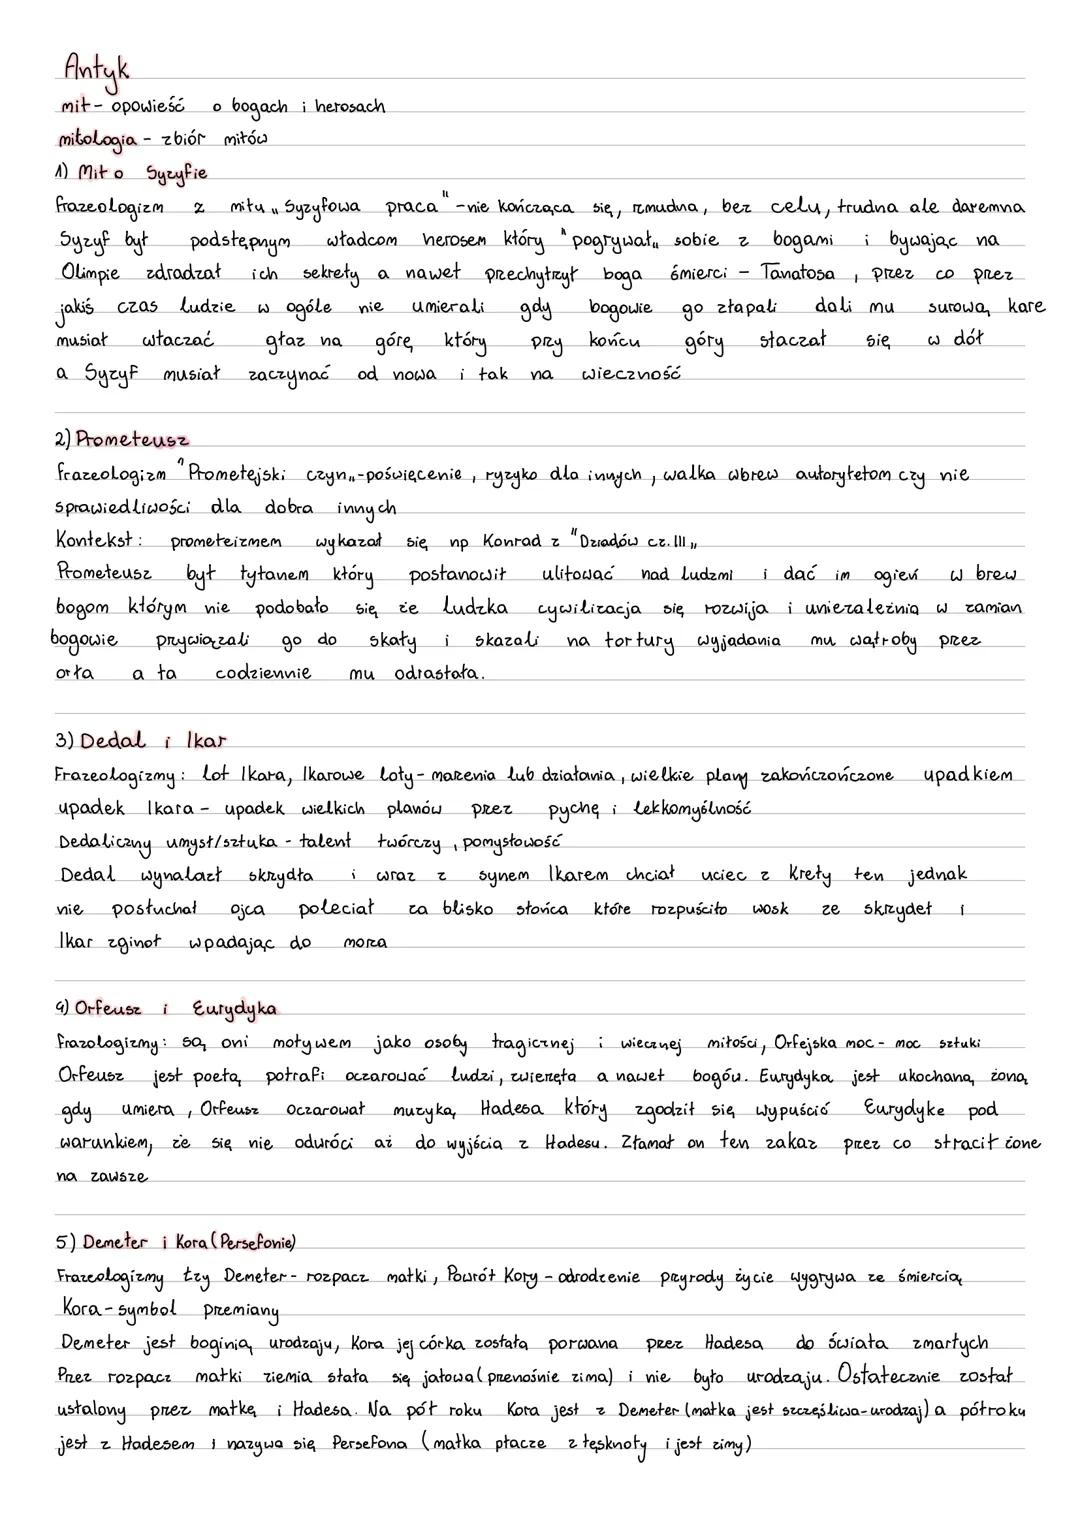 Antyk
mit - opowieść o bogach i herosach
mitologia - zbiór mitów
1) Mit o Syzyfie
frazeologizm z mitu „Syzyfowa praca" - nie kończąca się, żmudna, bez celu, trudna ale daremna
Syzyf był podstępnym władcom herosem który "pogrywał„ sobie z bogami i bywając na
Olimpie zdradzał ich sekrety a nawet przechytrzył boga śmierci - Tanatosa, przez co przez
jakiś czas ludzie w ogóle nie umierali gdy bogowie go złapali dali mu surową kare
musiał wtaczać głaz na górę który przy końcu góry staczał się w dół
a Syzyf musiał zaczynać od nowa i tak na wieczność
2) Prometeusz
frazeologizm "Prometejski czyn„-poświęcenie, ryzyko dla innych, walka wbrew autorytetom czy nie
sprawiedliwości dla dobra innych
Kontekst: prometeizmem wykazał się np Konrad z "Dziadów cz. III„
Prometeusz był tytanem który postanowił ulitować nad ludzmi i dać im ogień w brew
bogom którym nie podobało się że ludzka cywilizacja się rozwija i uniezależnią w zamian
bogowie przywiązali go do skały i skazali na tortury wyjadania mu wątroby przez
orła a ta codziennie mu odrastała.
3) Dedal i Ikar
Frazeologizmy: lot Ikara, Ikarowe loty - marzenia lub działania, wielkie plany zakończończone upadkiem
upadek Ikara - upadek wielkich planów przez pychę i lekkomyślność
Dedaliczny umysł/sztuka - talent twórczy, pomysłowość
Dedal wynalazł skrzydła i wraz z synem Ikarem chciał uciec z Krety ten jednak
nie posłuchał ojca poleciał za blisko słońca które rozpuściło wosk ze skrzydeł i
Ikar zginoł wpadając do morza
4) Orfeusz i Eurydyka
frazologizmy: są oni motywem jako osoby tragicznej i wiecznej miłości, Orfejska moc - moc sztuki
Orfeusz jest poetą potrafi oczarować ludzi, zwierzęta a nawet bogów. Eurydyka jest ukochaną żoną
gdy umiera, Orfeusz oczarował muzyką Hadesa który zgodził się wypuścić Eurydyke pod
warunkiem, że się nie odwróci aż do wyjścia z Hadesu. Złamał on ten zakaz przez co stracił żone
na zawsze
5) Demeter i Kora (Persefonie)
Frazeologizmy łzy Demeter - rozpacz matki, Powrót Kory - odrodzenie przyrody życie wygrywa ze śmiercią
Kora - symbol przemiany
Demeter jest boginią urodzaju, Kora jej córka została porwana przez Hadesa do świata zmarłych
Przez rozpacz matki ziemia stała się jałowa (przenośnie zima) i nie było urodzaju. Ostatecznie został
ustalony przez matkę i Hadesa. Na pół roku Kora jest z Demeter (matka jest szczęśliwa-urodzaj) a półroku
jest z Hadesem i nazywa się Persefona (matka płacze z tęsknoty i jest zimy)